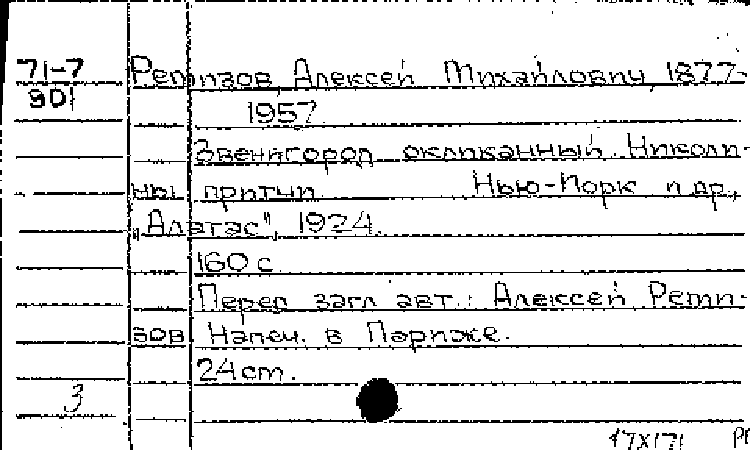 71-7 Ремизов, Алексей Михайлович, 1877-
901 1957
Звенигород окликанный. Николи-
ны притчи Нью-Йорк и др.,
"Алатас", 1924.
160 с
Перед загл авт.: Алексей Реми-
зов Напеч. в Париже.
24 cm.
3
17X171